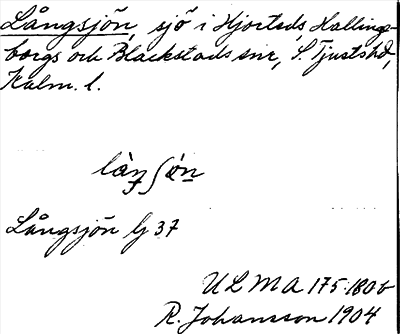 Långsjön, sjö i Hjorteds, Hallings-
bergs och Blackstads snr, S. Tjusts hd,
Kalm. l.
Långsjön lj 37
ULMA 175:180b
R. Johansson 1904